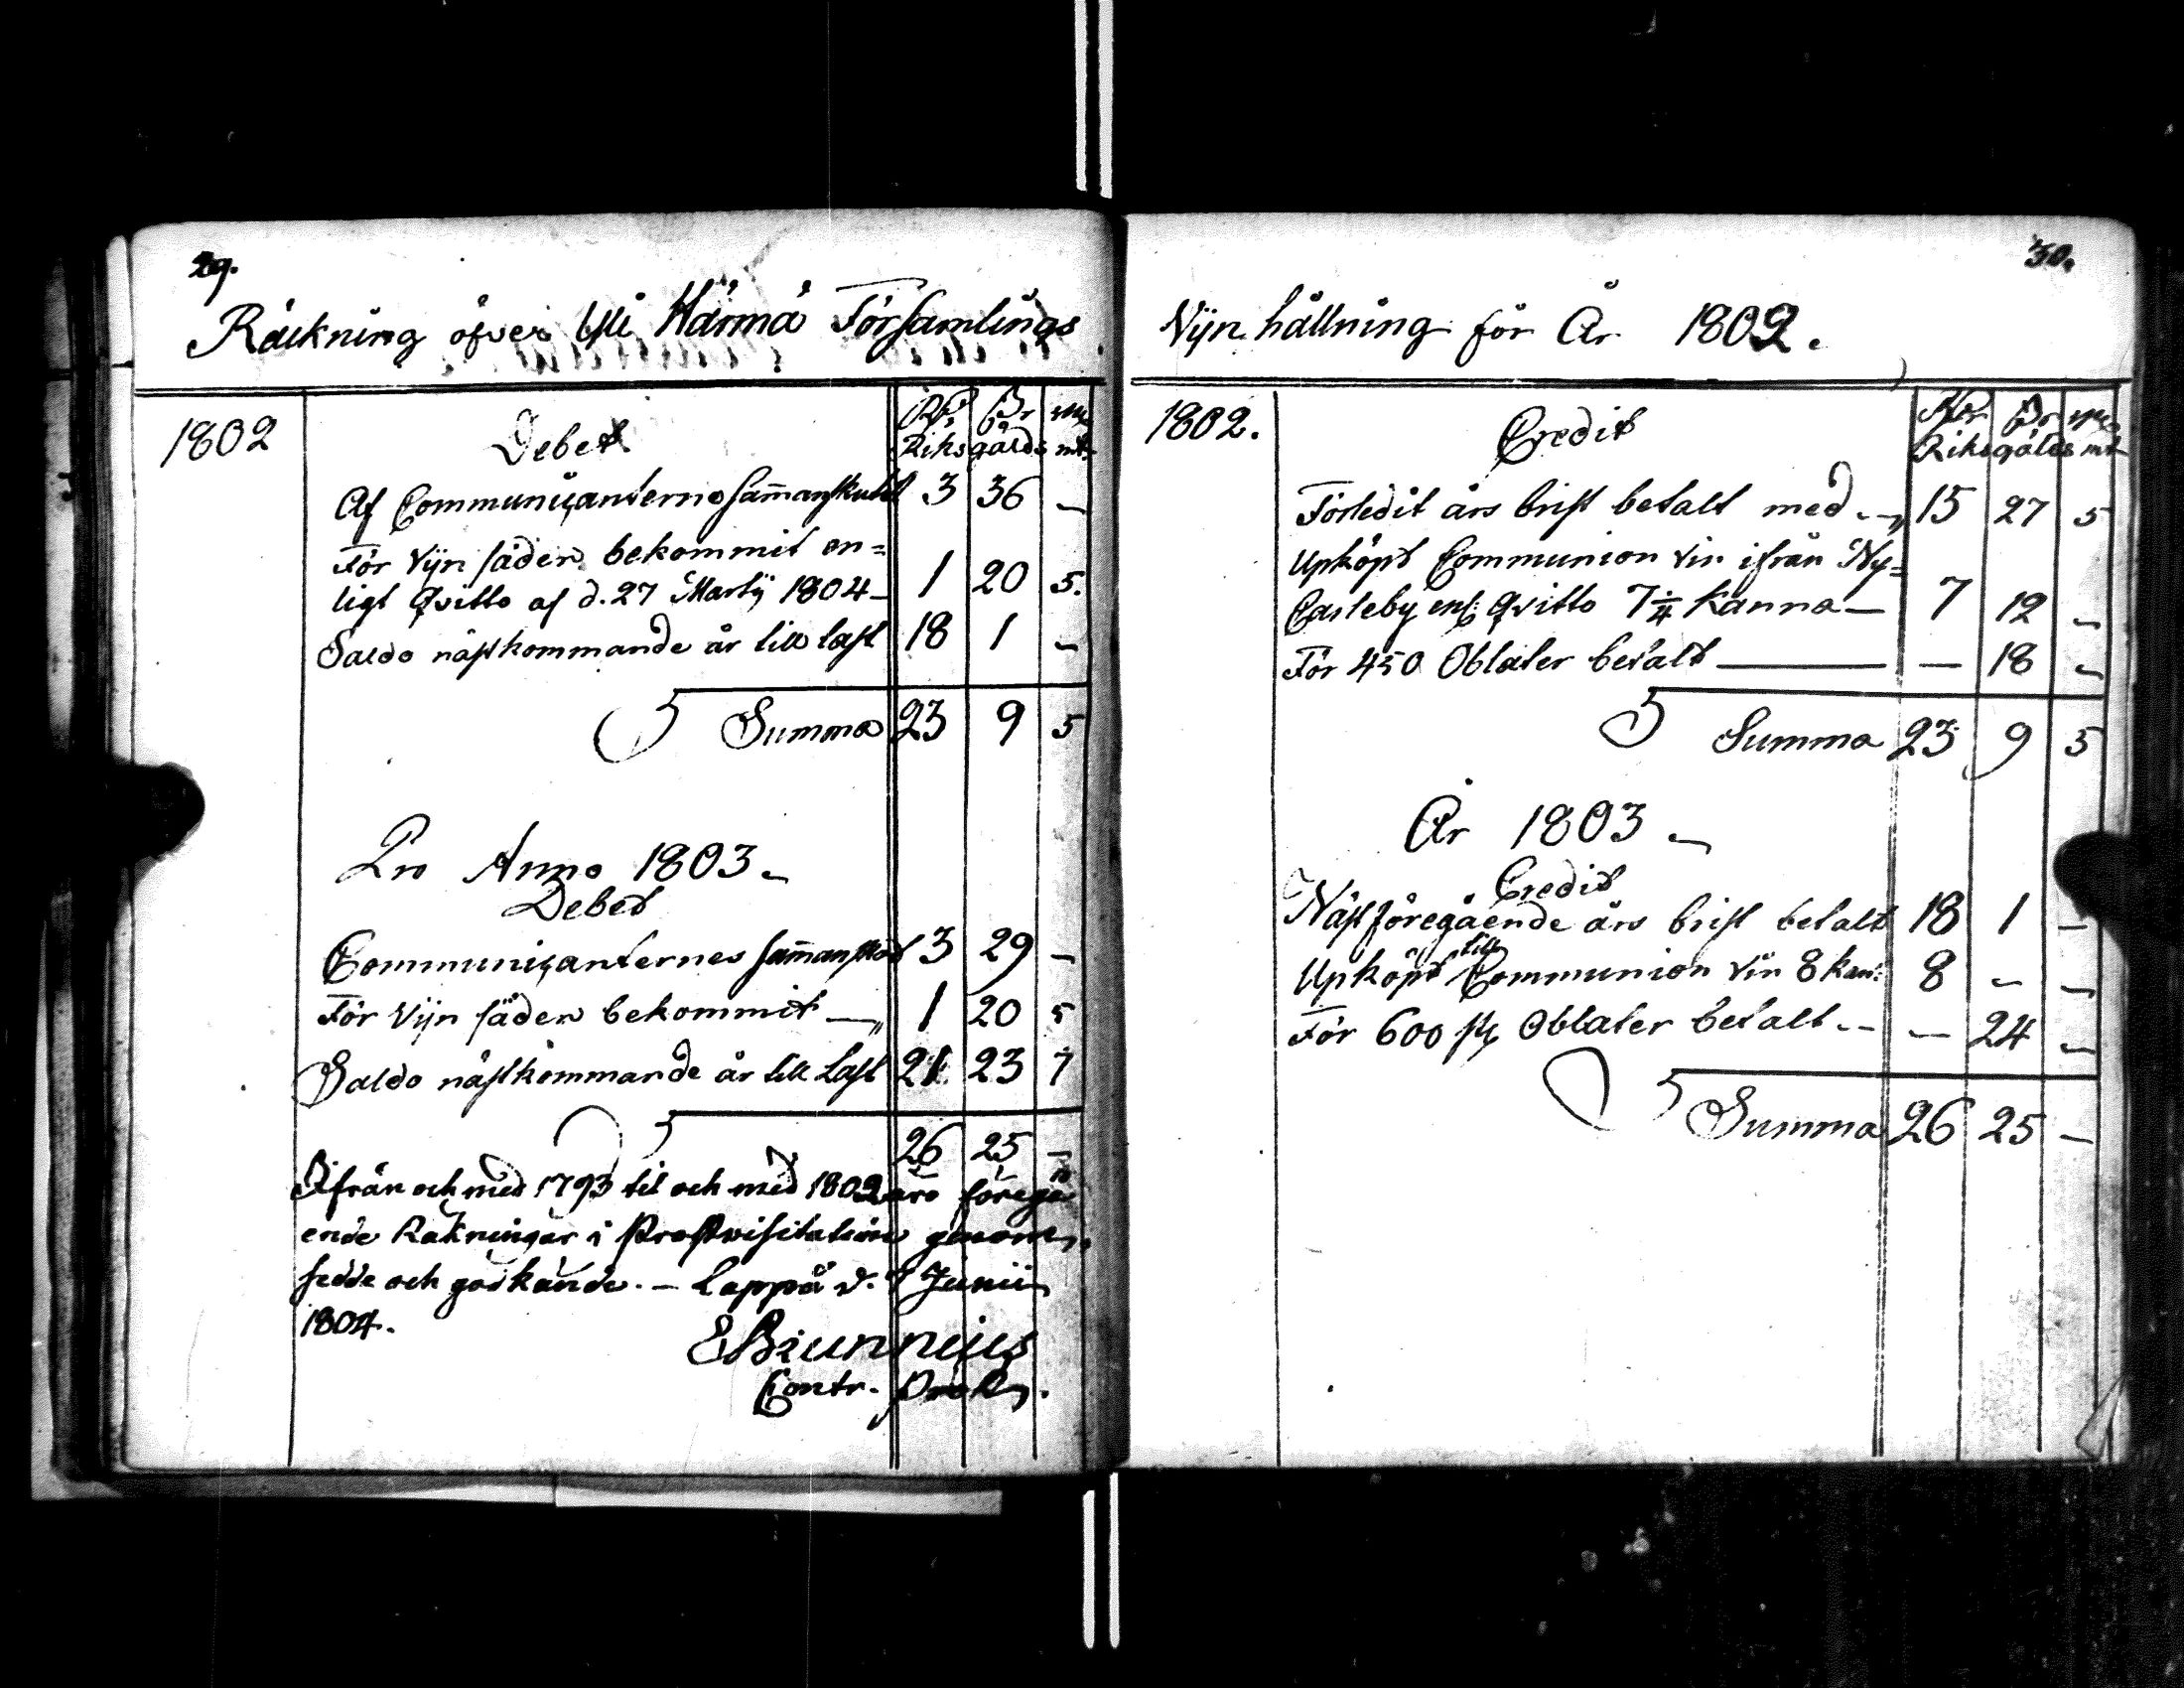 29.
Räckning öfver Ylli Härmä Församlings
1802
Debet
Rd. ß. rst.
Riksgälds mt.
Af Communicanterne sammanskutit 3 36 -
För Vijn säden bekommit en=
ligt Qvitto af d. 27 Martij 1804 - 1 20 5.
Saldo nästkommande år till last 18 1 -
Summa 23 9 5
Pro Anno 1803 -
Debet
Communicanternes sammanskott 3 29 -
För Vijn säden bekommit - 1 20 5
Saldo nästkommande år till Last 21 23 7
26 25 -
Ifrån och med 1793 til och med 1802 äro föregå
ende Räkningar i Prostvisitation genom
sedde och godkände. - Lappå d. 8 Junii
1804.
E Brunnius
Contr. Prost.
30.
Vijn hållning för År 1802.
1802.
Credit
Rdr ß. rst.
Riksgälds mt
Förledit års brist betalt med - 15 27 5
Upköpt Communion vin ifrån Ny=
Carleby enl: Qvitto 7 1/4 Kanna - 7 12 -
För 450 Oblater betalt - - 18 -
Summa 23 9 5
År 1803 -
Credit
Näst föregående års brist betalt 18 1 -
Upköpt till Communion Vin 8 kan: 8 - -
För 600 st Oblater betalt - - 24 -
Summa 26 25 -